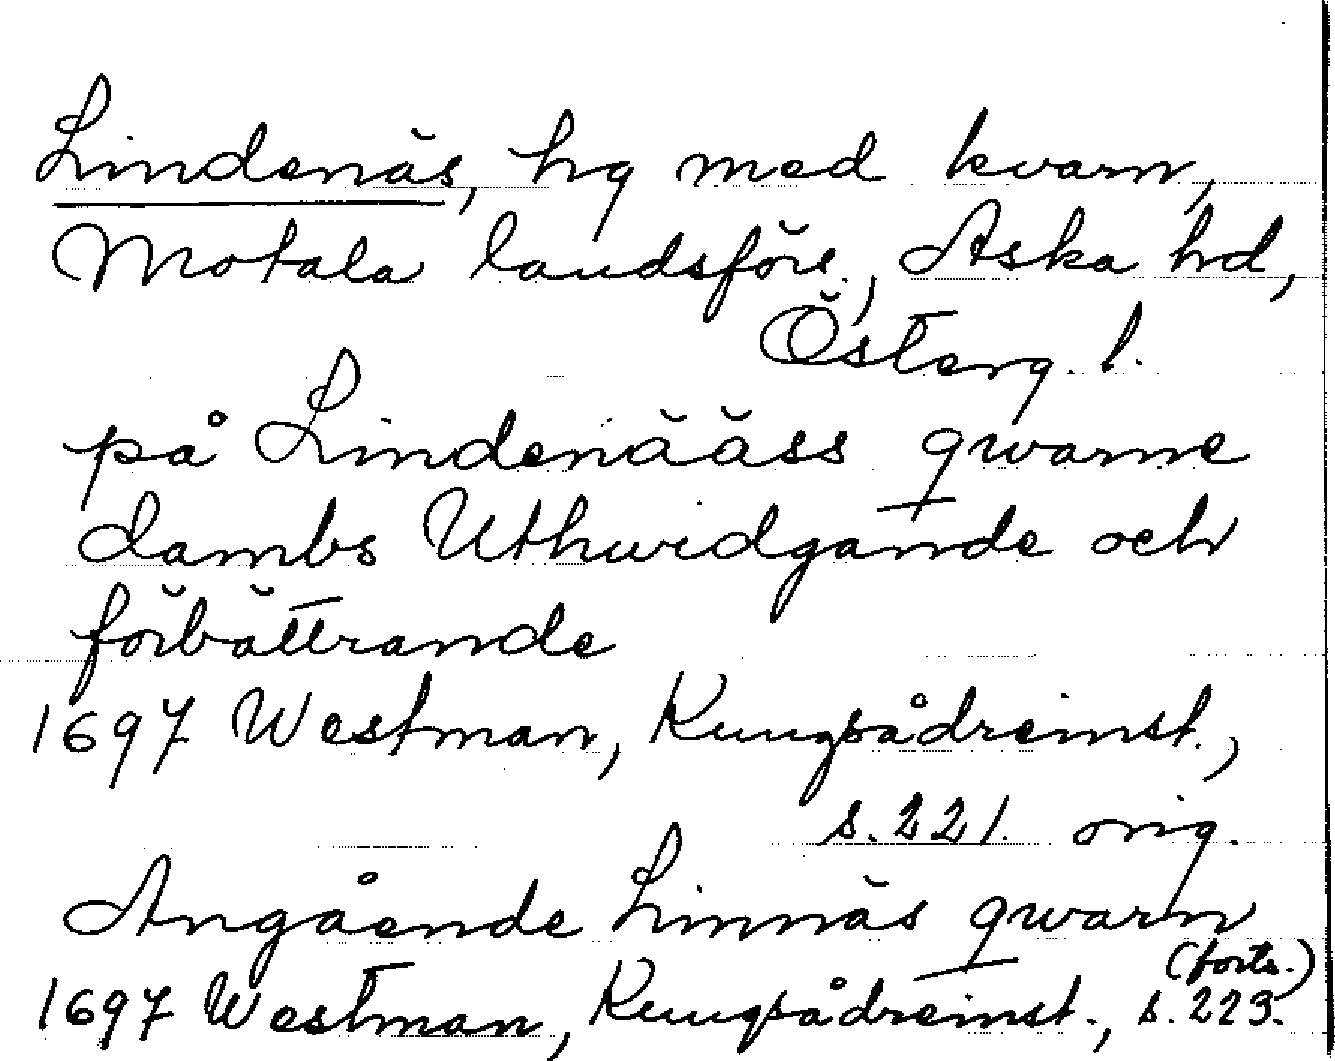 Lindenäs, hg med kvarn,
Motala landsförs., Aska hd,
Österg. l.
på Lindenääss qwarne
dambs Uthwidgande och
förbättrande
1697 Westman, Kungsådreinst.,
s. 221. orig.
Angående Linnäs qwarn
(forts.)
1697 Westman, Kungsådreinst., s. 223.